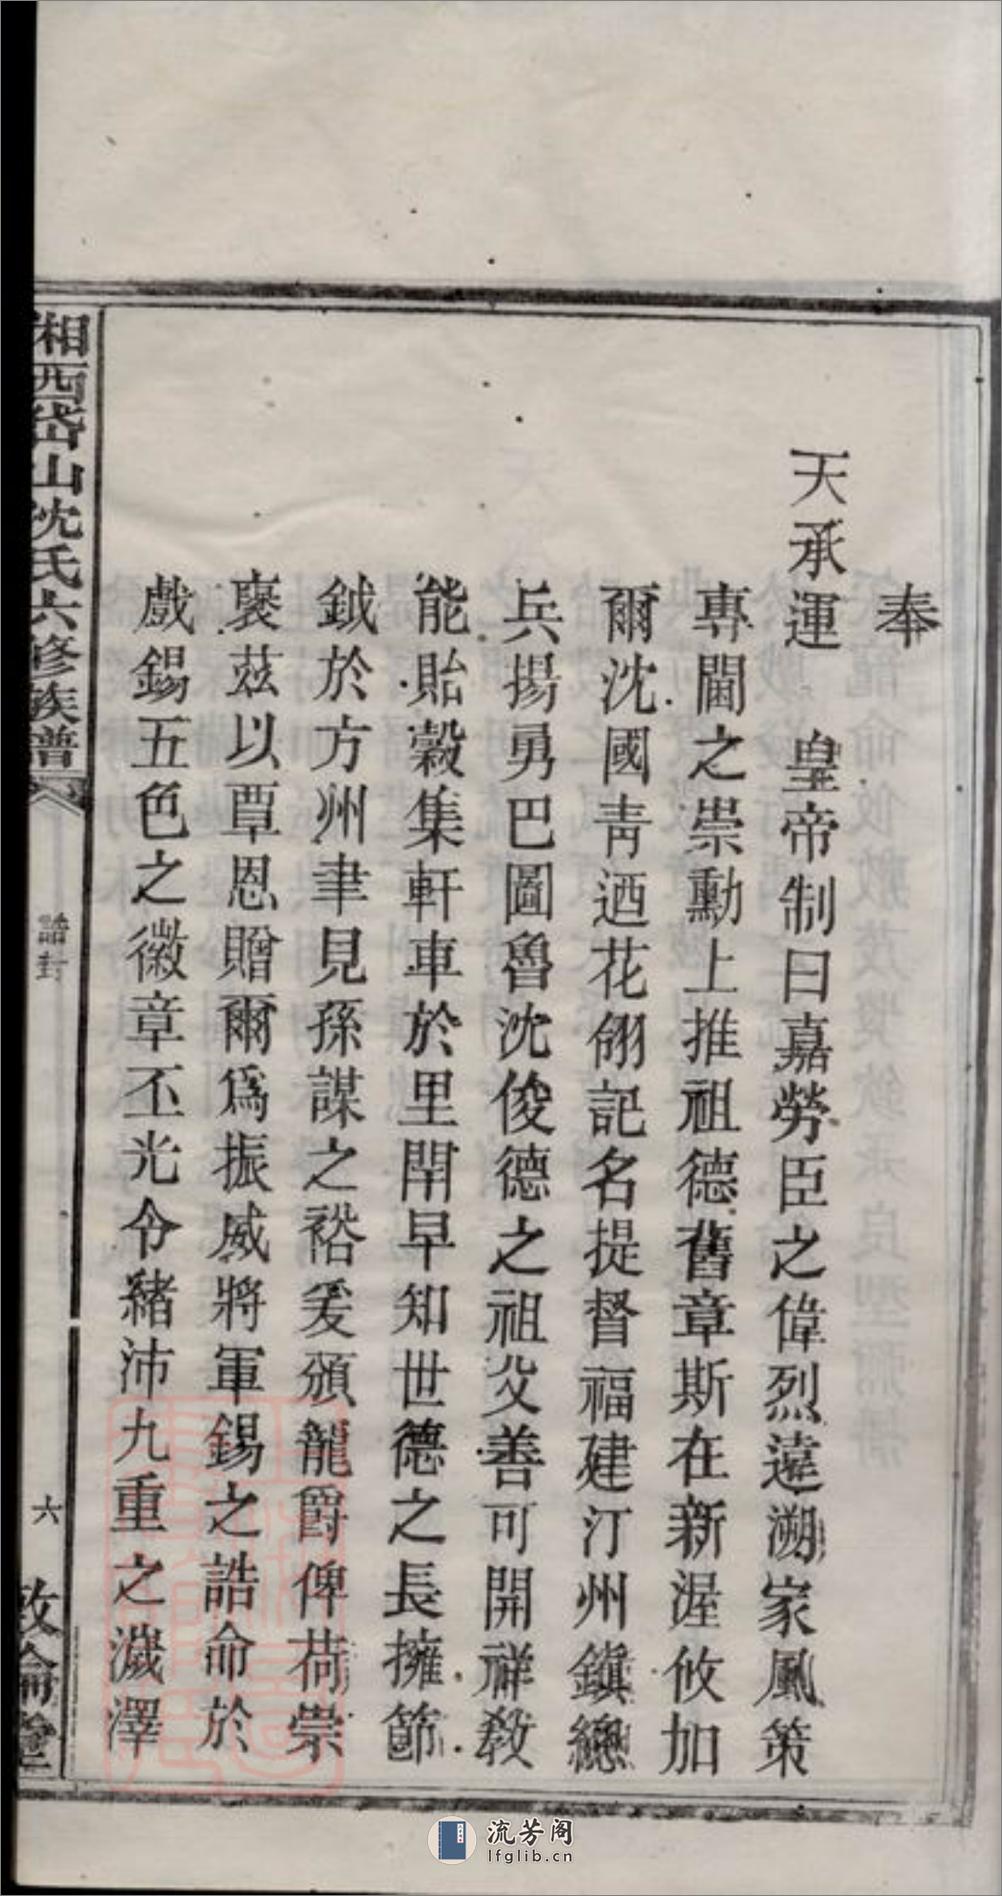 奉
天承運　皇帝制曰嘉勞臣之偉烈遠溯家風策
專閫之崇勳上推祖德舊章斯在新渥攸加
爾沈國青迺花翎記名提督福建汀州鎭總
兵揚勇巴圖魯沈俊德之祖父善可開祥敎
能貽穀集軒車於里閈早知世德之長擁節
鉞於方州聿見孫謀之裕爰頒龍爵俾荷崇
褒茲以覃恩贈爾爲振威將軍錫之誥命於
戲錫五色之徽章丕光令緒沛九重之濊澤
湘西岱山沈氏六修族譜
誥封
六
敦倫堂
流芳阁
lfglib.cn